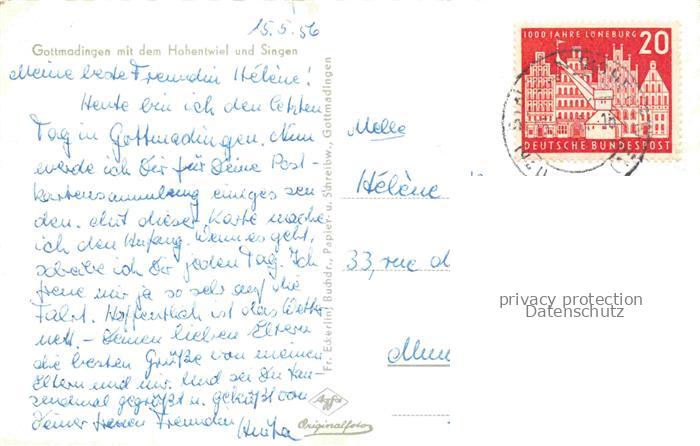 15.5.56
Gottmadingen mit dem Hohentwiel und Singen
Meine beste Freundin Hélène!
Heute bin ich den letzten
Tag in Gottmadingen. Nun
werde ich Dir für Deine Post-
kartensammlung einiges sen
den. Mit dieser Karte mache
ich den Anfang. Wenn es geht,
schreibe ich Dir jeden Tag. Ich
freue mir ja so sehr auf die
Fahrt. Hoffentlich ist das Wetter
nett. - Deinen lieben Eltern
die besten Grüße von meinen
Eltern und mir. Und sei Du tau-
sendmal gegrüßt u. geküßt von
Deiner treuen Freundin
Fr. Eckerlin, Buchdr., Papier- u. Schreibw., Gottmadingen
Agfa
Originalfoto
1000 JAHRE LÜNEBURG
20
DEUTSCHE BUNDESPOST
Melle
Hélène
33, rue d
privacy protection
Datenschutz